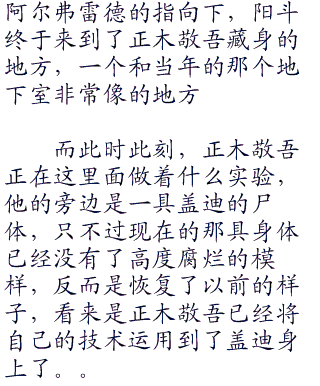 阿尔弗雷德的指向下，阳斗
终于来到了正木敬吾藏身的
地方，一个和当年的那个地
下室非常像的地方
而此时此刻，正木敬吾
正在这里面做着什么实验，
他的旁边是一具盖迪的尸
体，只不过现在的那具身体
已经没有了高度腐烂的模
样，反而是恢复了以前的样
子，看来是正木敬吾已经将
自己的技术运用到了盖迪身
上了。。